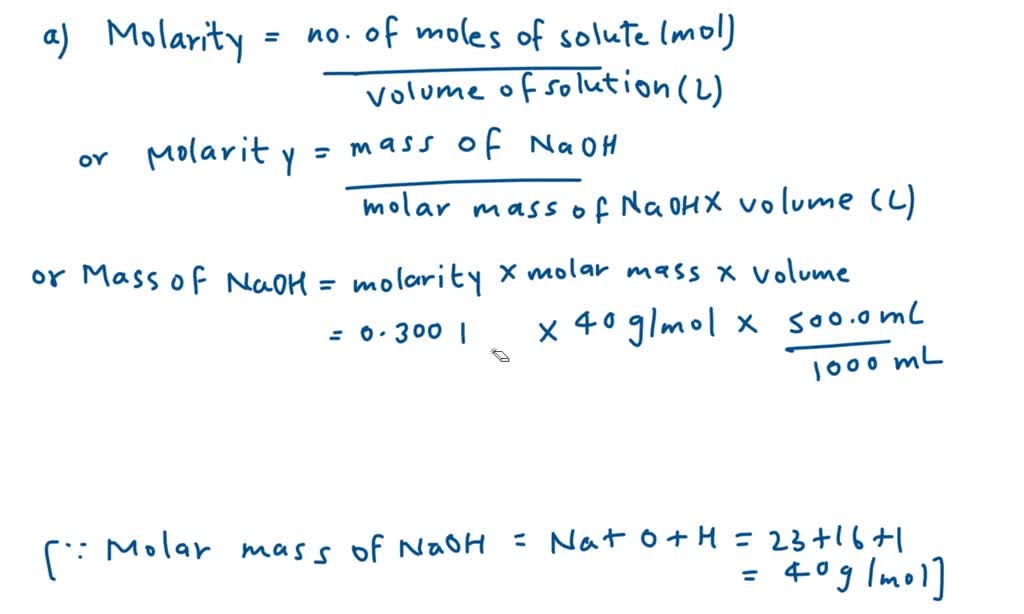 a) Molarity = no. of moles of solute (mol)
volume of solution (L)
or Molarity = mass of NaOH
molar mass of NaOH x volume (L)
or Mass of NaOH = molarity x molar mass x volume
= 0.300 | x 40 g/mol x 500.0 mL
1000 mL
[∵ Molar mass of NaOH = Na + O + H = 23+16+1
= 40 g/mol]